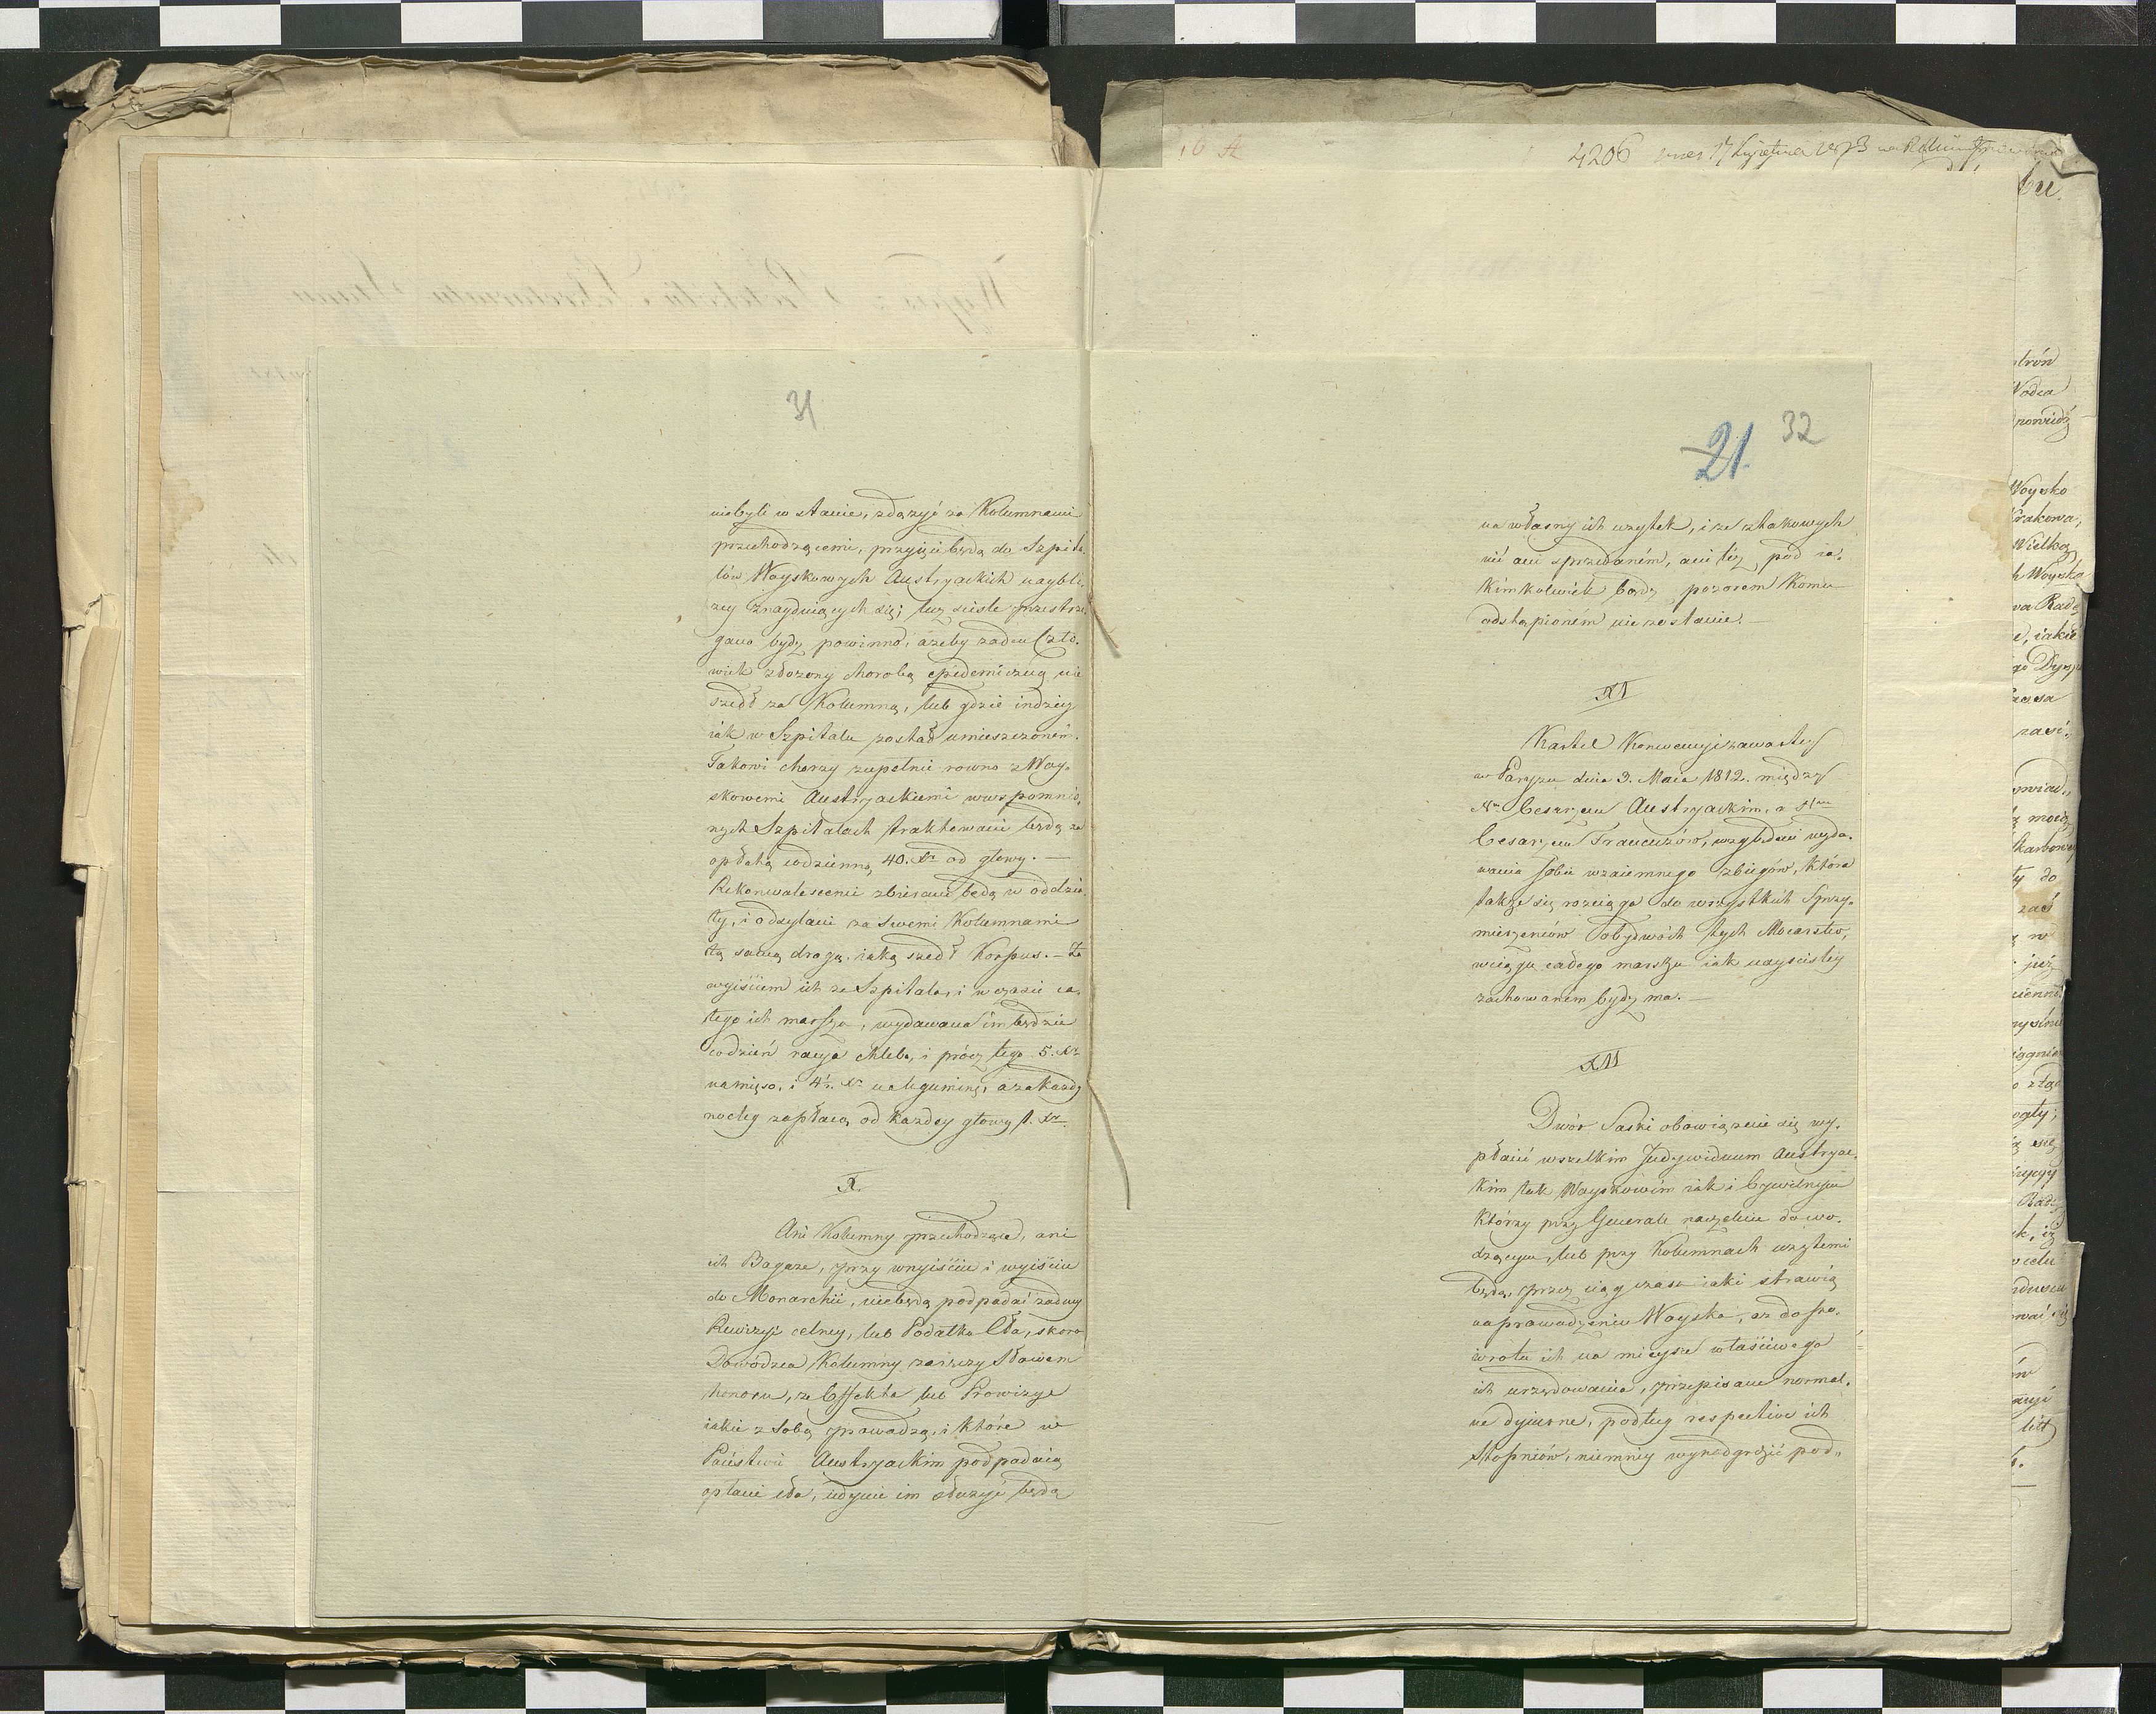 31
niebyli w stanie, zdążyć za Kolumnami
przechodzącemi, przyięci będą do Szpita-
lów Woyskowych Austryackich naybli-
żey znayduiących się; lecz ściśle przestrze-
gano bydź powinno, ażeby żaden Czło-
wiek złożony chorobą epidemiczną nie
szedł za Kolumną, lub gdzie indziey
iak w Szpitalu został umieszczoném.
Takowi chorzy zupełnie rowno z Woy-
skowemi Austryackiemi w wspomnio-
nych Szpitalach traktowani będą za
opłatą codzienną 40. Xr od głowy. —
Rekonwalescenci zbierani będą w oddzia-
ły, i odsyłani za swemi Kolumnami
tą samą drogą, iaką szedł Korpus. — Za
wyiściem ich ze Szpitala, i w czasie ca-
łego ich marszu, wydawana im będzie
codzień racya chleba, i prócz tego 5. Xr
na mięso, i 4½ Xr na leguminę, a za każdy
nocleg zapłacą od każdey głowy 1. Xr.
X.
Ani Kolumny przechodzące, ani
ich Bagaże, przy wnyiściu i wyiściu
do Monarchii, niebędą podpadać żadney
Rewizyi celney, lub Podatku Cła, skoro
Dowódzca Kolumny zaręczy Słowem
honoru, że Effekta lub Prowizye
iakie z sobą prowadzą, i które w
Państwie Austryackim podpadaią
opłacie cła, iedynie im służyć będą
4206
21. 32
na własny ich użytek, i że z takowych
nić ani sprzedaném, ani też pod ia-
kimkolwiek bądź pozorem Komu
odstąpioném nie zostanie. —
XI
Kartel Konwencyi zawartey
w Paryżu dnia 9. Maia 1812. między
Nm Cesarzem Austryackim, a Nm
Cesarzem Francuzów, względem wyda-
wania sobie wzaiemnego zbiegów, która
także się rozciąga do wszystkich Sprzy-
mierzeńców obydwóch tych Mocarstw,
w ciągu całego marszu iak nayściśley
zachowaném bydź ma. —
XII
Dwór Saski obowiązuie się wy-
płacić wszelkim Indywiduum Austryac-
kim tak Woyskowém iak i Cywilnym
którzy przy Generale naczelnie dowo-
dzącym, lub przy Kolumnach użytemi
będą, przez ciąg czasu iaki strawią
na prowadzeniu Woyska, aż do po-
wrotu ich na mieysce właściwego
ich urzędowania, przepisane normal-
ne dyiurne, podług respective ich
Stopniów, niemniey wynadgrodzić pod-